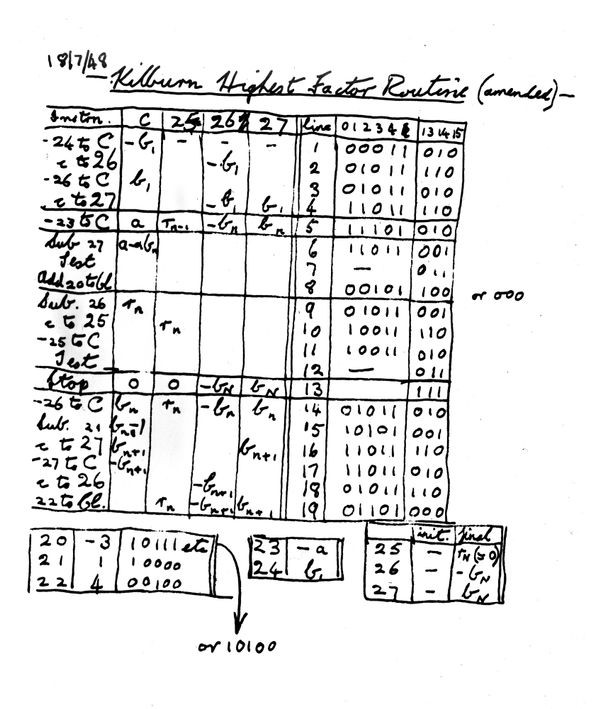 18/7/48
Kilburn Highest Factor Routine (amended)—
Instrn. C 25 26 27 line 0 1 2 3 4 13 14 15
-24 to C -b₁ - - - 1 00011 010
c to 26 -b₁ 2 01011 110
-26 to C b₁ 3 01011 010
c to 27 -b₁ b₁ 4 11011 110
-23 to C a rₙ₋₁ -bₙ bₙ 5 11101 010
Sub. 27 a-abₙ 6 11011 001
Test 7 — 011
Add 20 to bl. 8 00101 100 or 000
Sub. 26 rₙ 9 01011 001
c to 25 rₙ 10 10011 110
-25 to C 11 10011 010
Test 12 — 011
Stop 0 0 -b_N b_N 13 111
-26 to C bₙ rₙ -bₙ bₙ 14 01011 010
Sub. 21 bₙ-1 15 10101 001
c to 27 bₙ₊₁ bₙ₊₁ 16 11011 110
-27 to C -bₙ₊₁ 17 11011 010
c to 26 -bₙ₊₁ 18 01011 110
22 to bl. rₙ -bₙ₊₁ bₙ₊₁ 19 01101 000
20 -3 10111 etc
21 1 10000
22 4 00100
or 10100
23 -a
24 b₁
init. final
25 — r_N (=0)
26 — -b_N
27 — b_N